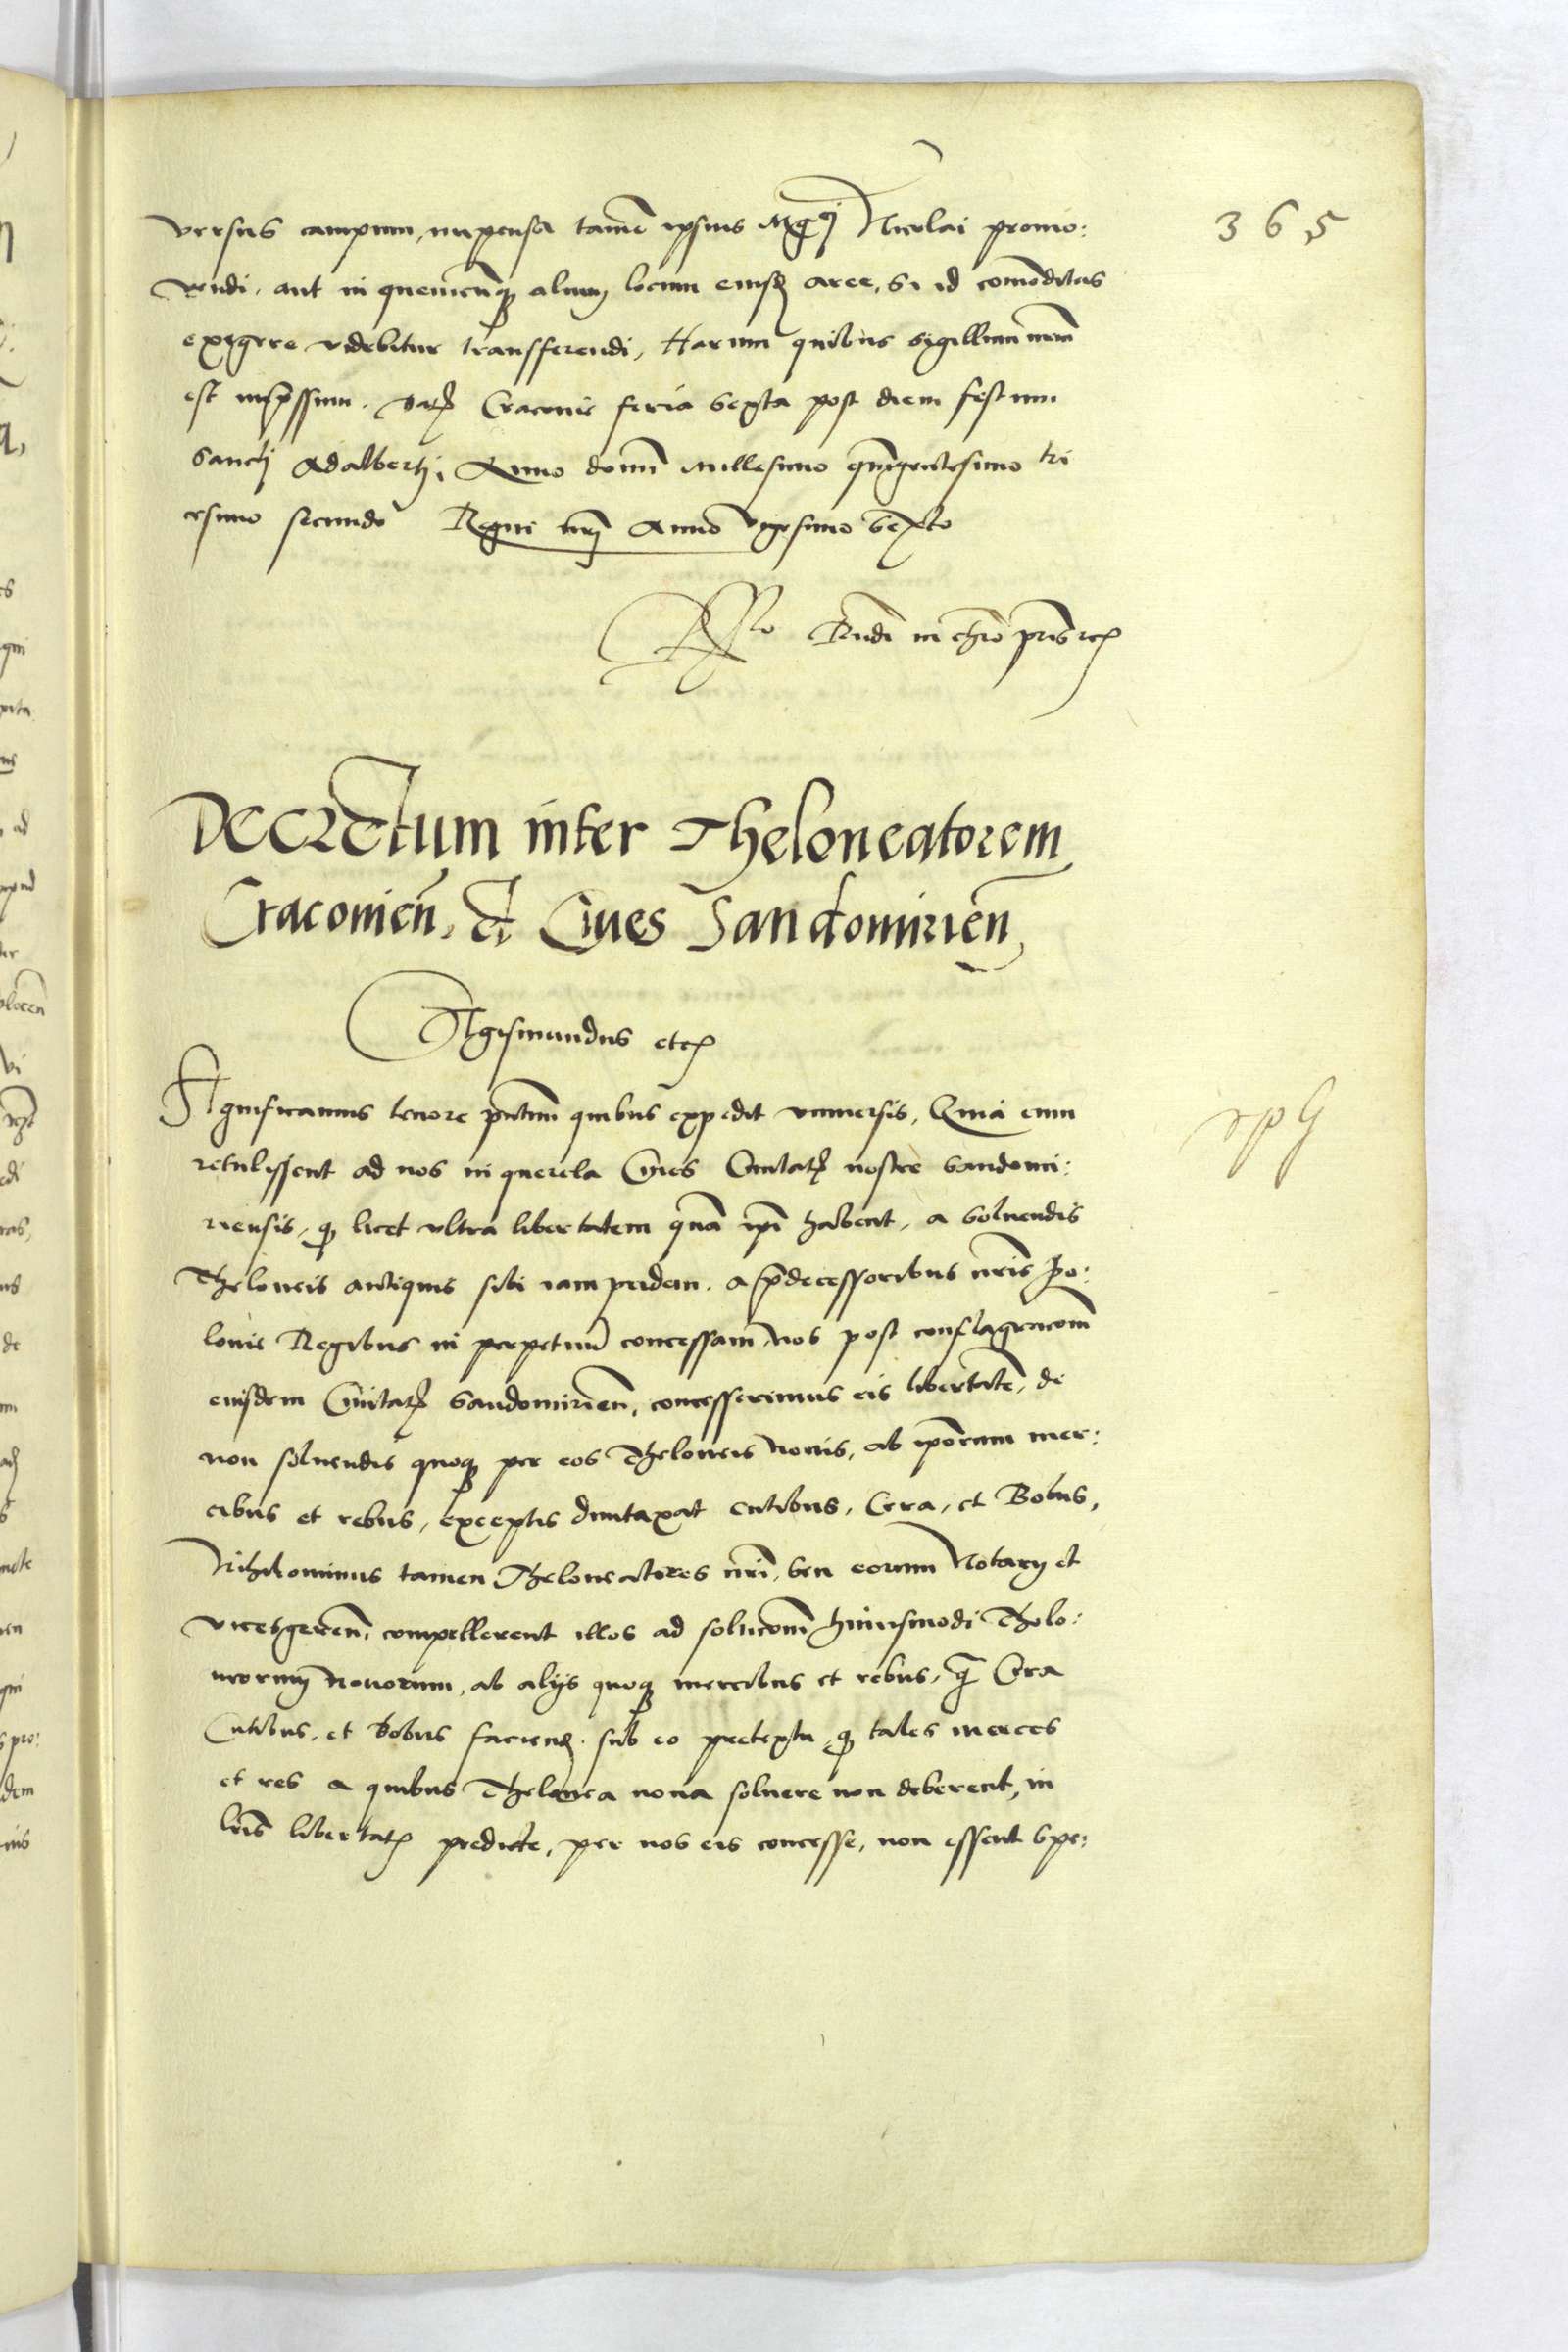 versus campum, impensa tamē ipsius Mgci Nicolai promo:
vendi. aut in quemcunq alium locum eiusd aree, si id comoditas
exigere videbitur transfferendi, Harum quibus sigillum nrm̄
est imp̄ssum. Datf Cracouie feria sexta post diem festum
Sancti Adalberti, Anno domī millesimo qūigentesimo tri
esimo secundo Regni nrī Anno vigesimo sexto
Rlo Rūdi in chrō pr̄is etc
365
Decretum inter Theloneatorem
Cracouien̄, et Ciues Sandomirien̄
Sigismundus etc
Significamus tenore pn̄tium quibus expedit vniuersis, Quia cum
retulissent ad nos in querela Ciues Ciuitatf nostre Sandomi:
riensis, q licet vltra libertatem quā ipī habent, a soluendis
Theloneis antiquis sibi iam pridem. a p̄decessoribus nrīs Po:
lonie Regibus in perpetuū concessam, nos post conflagracōm
eiusdem Ciuitatf Sandomirien̄, concesserimus eis libertatē, de
non soluendis quoq per eos Theloneis nouis, ab ipōrum mer:
cibus et rebus, exceptis duntaxat Cutibus, Cera, et Bobus,
Nihilominus tamen Theloneatores nrī, seu eorum Notarij et
vicetgeren̄, compellerent illos ad solucōm huiusmodi Tholo:
neorum nouorum, ab alijs quoq mercibus et rebus, q̄ Cera
Cutibus, et Bobus faciend. sub eo pretextu q tales merces
et res a quibus Thelonea noua soluere non deberent, in
lrīs libertatf predicte, per nos eis concesse, non essent spe: